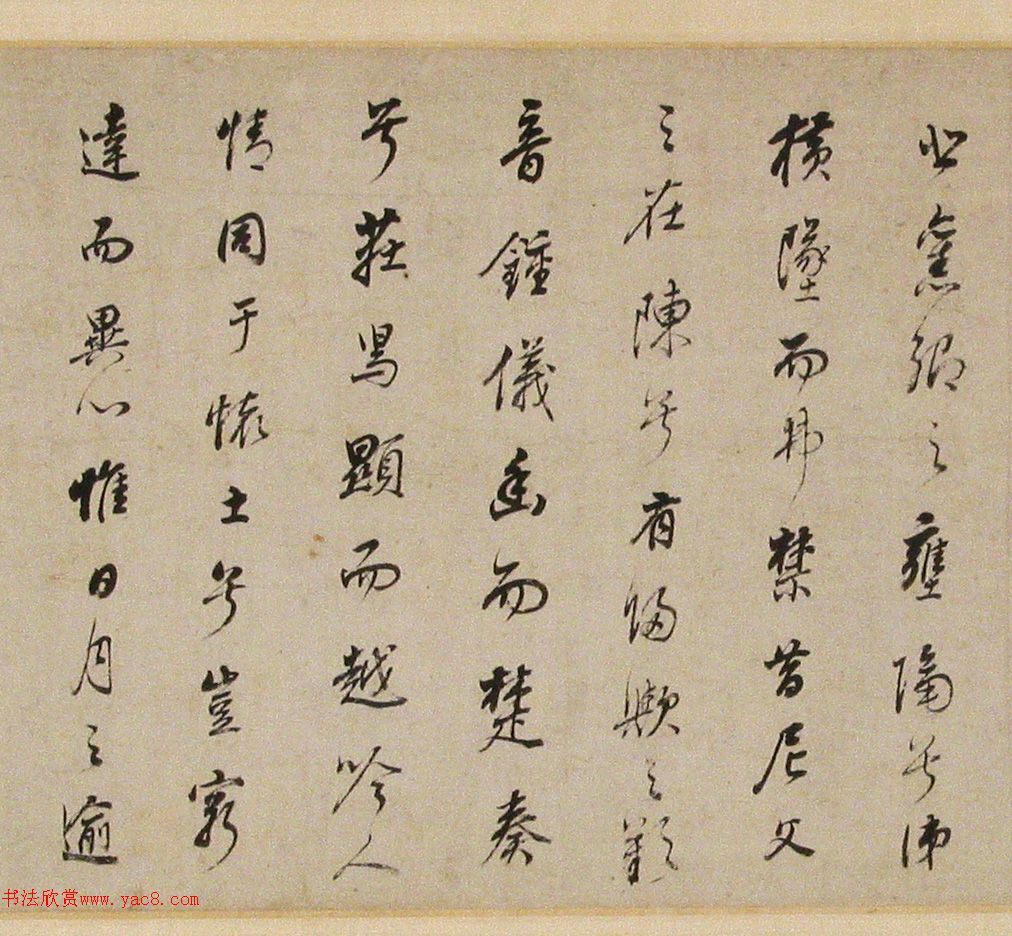 悲舊鄉之壅隔兮涕
橫墜而弗禁昔尼父
之在陳兮有歸歟之歎
音鍾儀幽而楚奏
兮莊舄顯而越吟人
情同于懷土兮豈窮
達而異心惟日月之逾
书法欣赏www.yac8.com